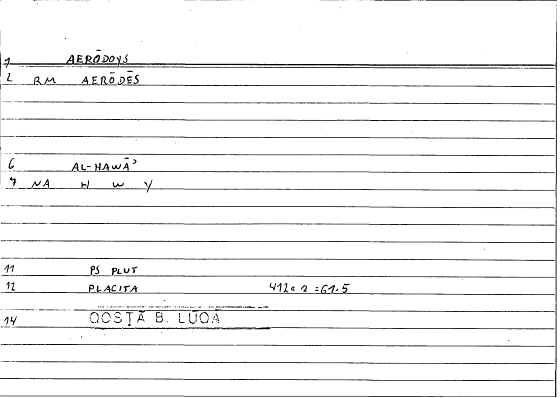 1 AERŌDOYS
2 RM AERŌDĒS
6 AL-HAWĀʾ
7 NA H W Y
11 PS PLUT
12 PLACITA 412a 2 = 61.5
14 QOSṬĀ B. LŪQĀ